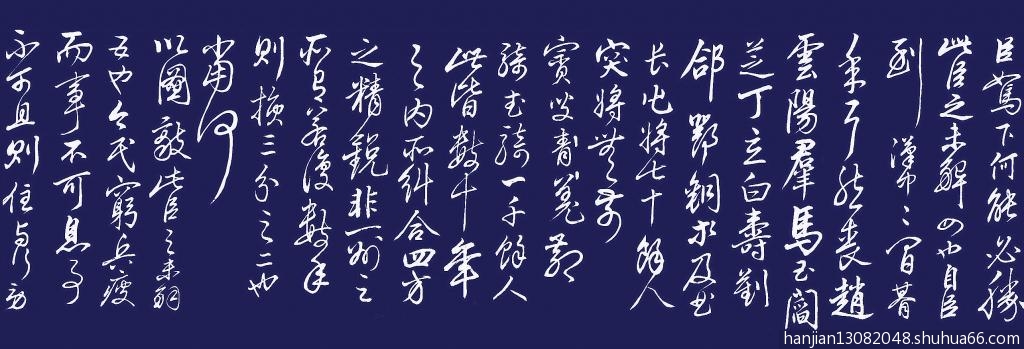 臣駑下何能必勝
此臣之未解四也自臣
到漢中〻間朞
年耳然喪趙
雲陽羣馬玉閻
芝丁立白壽劉
郃鄧銅等及曲
長屯將七十餘人
突將無前
賨叟青羌散
騎武騎一千餘人
此皆數十年
之內所糾合四方
之精銳非一州之
所有若復數年
則損三分之二也
當何
以圖敵此臣之未解
五也今民窮兵疲
而事不可息事
不可且則住與行勞
hanjian13082048.shuhua66.com